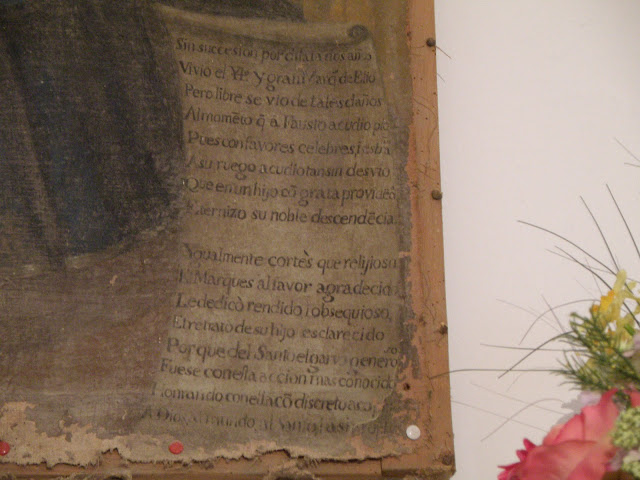 Sin succesion por dilatados años
Vivio el Yle y gran Marq de
Pero libre se vio de tales daños
Al momēto q̄ á Fausto acudio pio
Pues con favores celebres, i estrā
A su ruego acudio tan sin desvio
Que en un hijo cō grata providēa
Eternizo su noble descendēcia.
Ygualmente cortès que relijioso
El Marques al favor agradecido
Le dedicò rendido i obsequioso,
El retrato de su hijo esclarecido
Por que del Santo el garvo generoso
Fuese con ella accion mas conocido
Honrando con ella cō discreto
A Dios, al mundo, al Santo